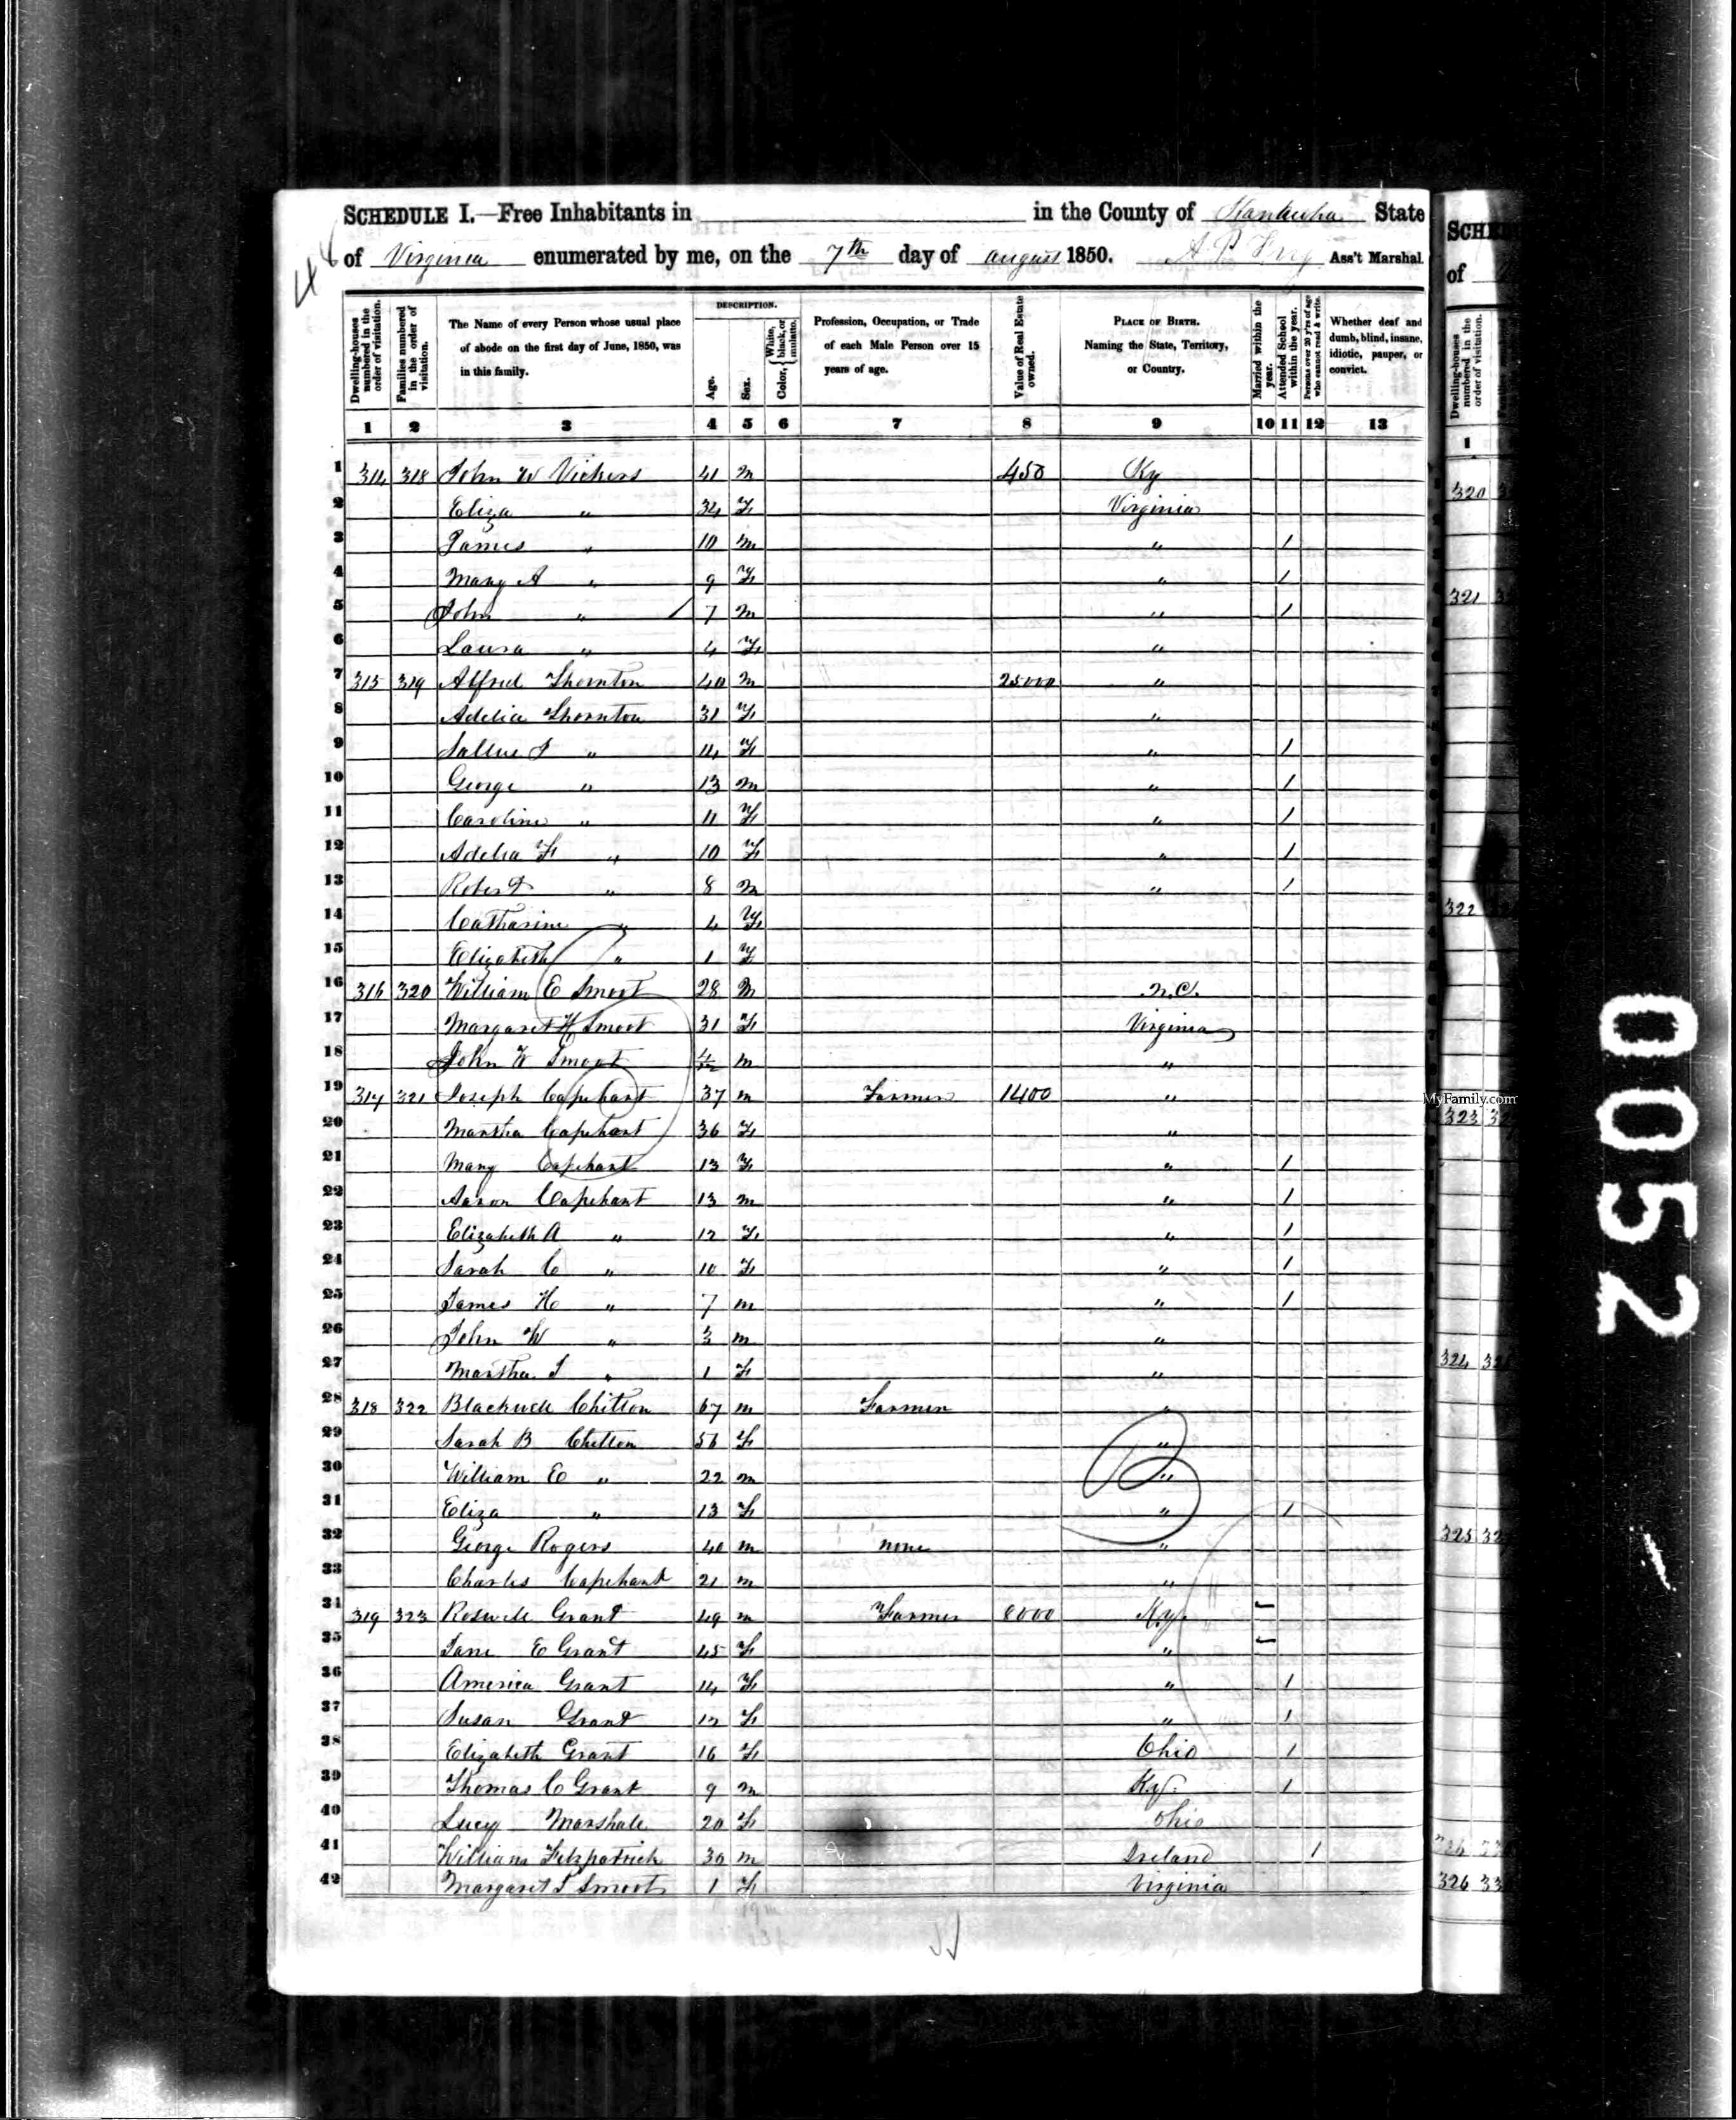 SCHEDULE I.—Free Inhabitants in in the County of Kanawha State
of Virginia enumerated by me, on the 7th day of august 1850. Ass't Marshal.
48
Dwelling-houses numbered in the order of visitation. Families numbered in the order of visitation. The Name of every Person whose usual place of abode on the first day of June, 1850, was in this family. DESCRIPTION. Age. Sex. Color, { White, black, or mulatto. Profession, Occupation, or Trade of each Male Person over 15 years of age. Value of Real Estate owned. PLACE OF BIRTH. Naming the State, Territory, or Country. Married within the year. Attended School within the year. Persons over 20 y'rs of age who cannot read & write. Whether deaf and dumb, blind, insane, idiotic, pauper, or convict.
1 2 3 4 5 6 7 8 9 10 11 12 13
1 314 318 John W Vickers 41 m 450 Ky
2 Eliza " 34 F Virginia
3 James " 10 m " 1
4 Mary A " 9 F " 1
5 John " / 7 m " 1
6 Laura " 4 F "
7 315 319 Alfred Thornton 40 m 25000 "
8 Adelia Thornton 31 F "
9 Sallie J " 14 F " 1
10 George " 13 m " 1
11 Caroline " 11 F " 1
12 Adelia F " 10 F " 1
13 Robert " 8 m " 1
14 Catharine " 4 F "
15 Elizabeth " 1 F "
16 316 320 William E Smoot 28 m N.C.
17 Margaret H Smoot 31 F Virginia
18 John W Smoot m "
19 317 321 Joseph Capehart 37 m Farmer 1400 "
20 Martha Capehart 36 F "
21 Mary Capehart 13 F " 1
22 Aaron Capehart 13 m " 1
23 Elizabeth A " 12 F " 1
24 Sarah C " 10 F " 1
25 James H " 7 m " 1
26 John W " 3 m "
27 Martha J " 1 F "
28 318 322 Blackwell Chilton 67 m Farmer "
29 Sarah B Chilton 56 F "
30 William E " 22 m "
31 Eliza " 13 F " 1
32 George Rogers 40 m none "
33 Charles Capehart 21 m "
34 319 323 Roswell Grant 49 m Farmer 8000 Ky.
35 Jane E Grant 45 F "
36 America Grant 14 F " 1
37 Susan Grant 12 F " 1
38 Elizabeth Grant 16 F Ohio 1
39 Thomas C Grant 9 m Ky. 1
40 Lucy Marshall 20 F Ohio
41 William Fitzpatrick 30 m Ireland 1
42 Margaret J Smoot 1 F Virginia
SCHE
of
Dwelling-houses numbered in the order of visitation.
1
320
321
322
MyFamily.com
323
324
325
326
326 33
0052